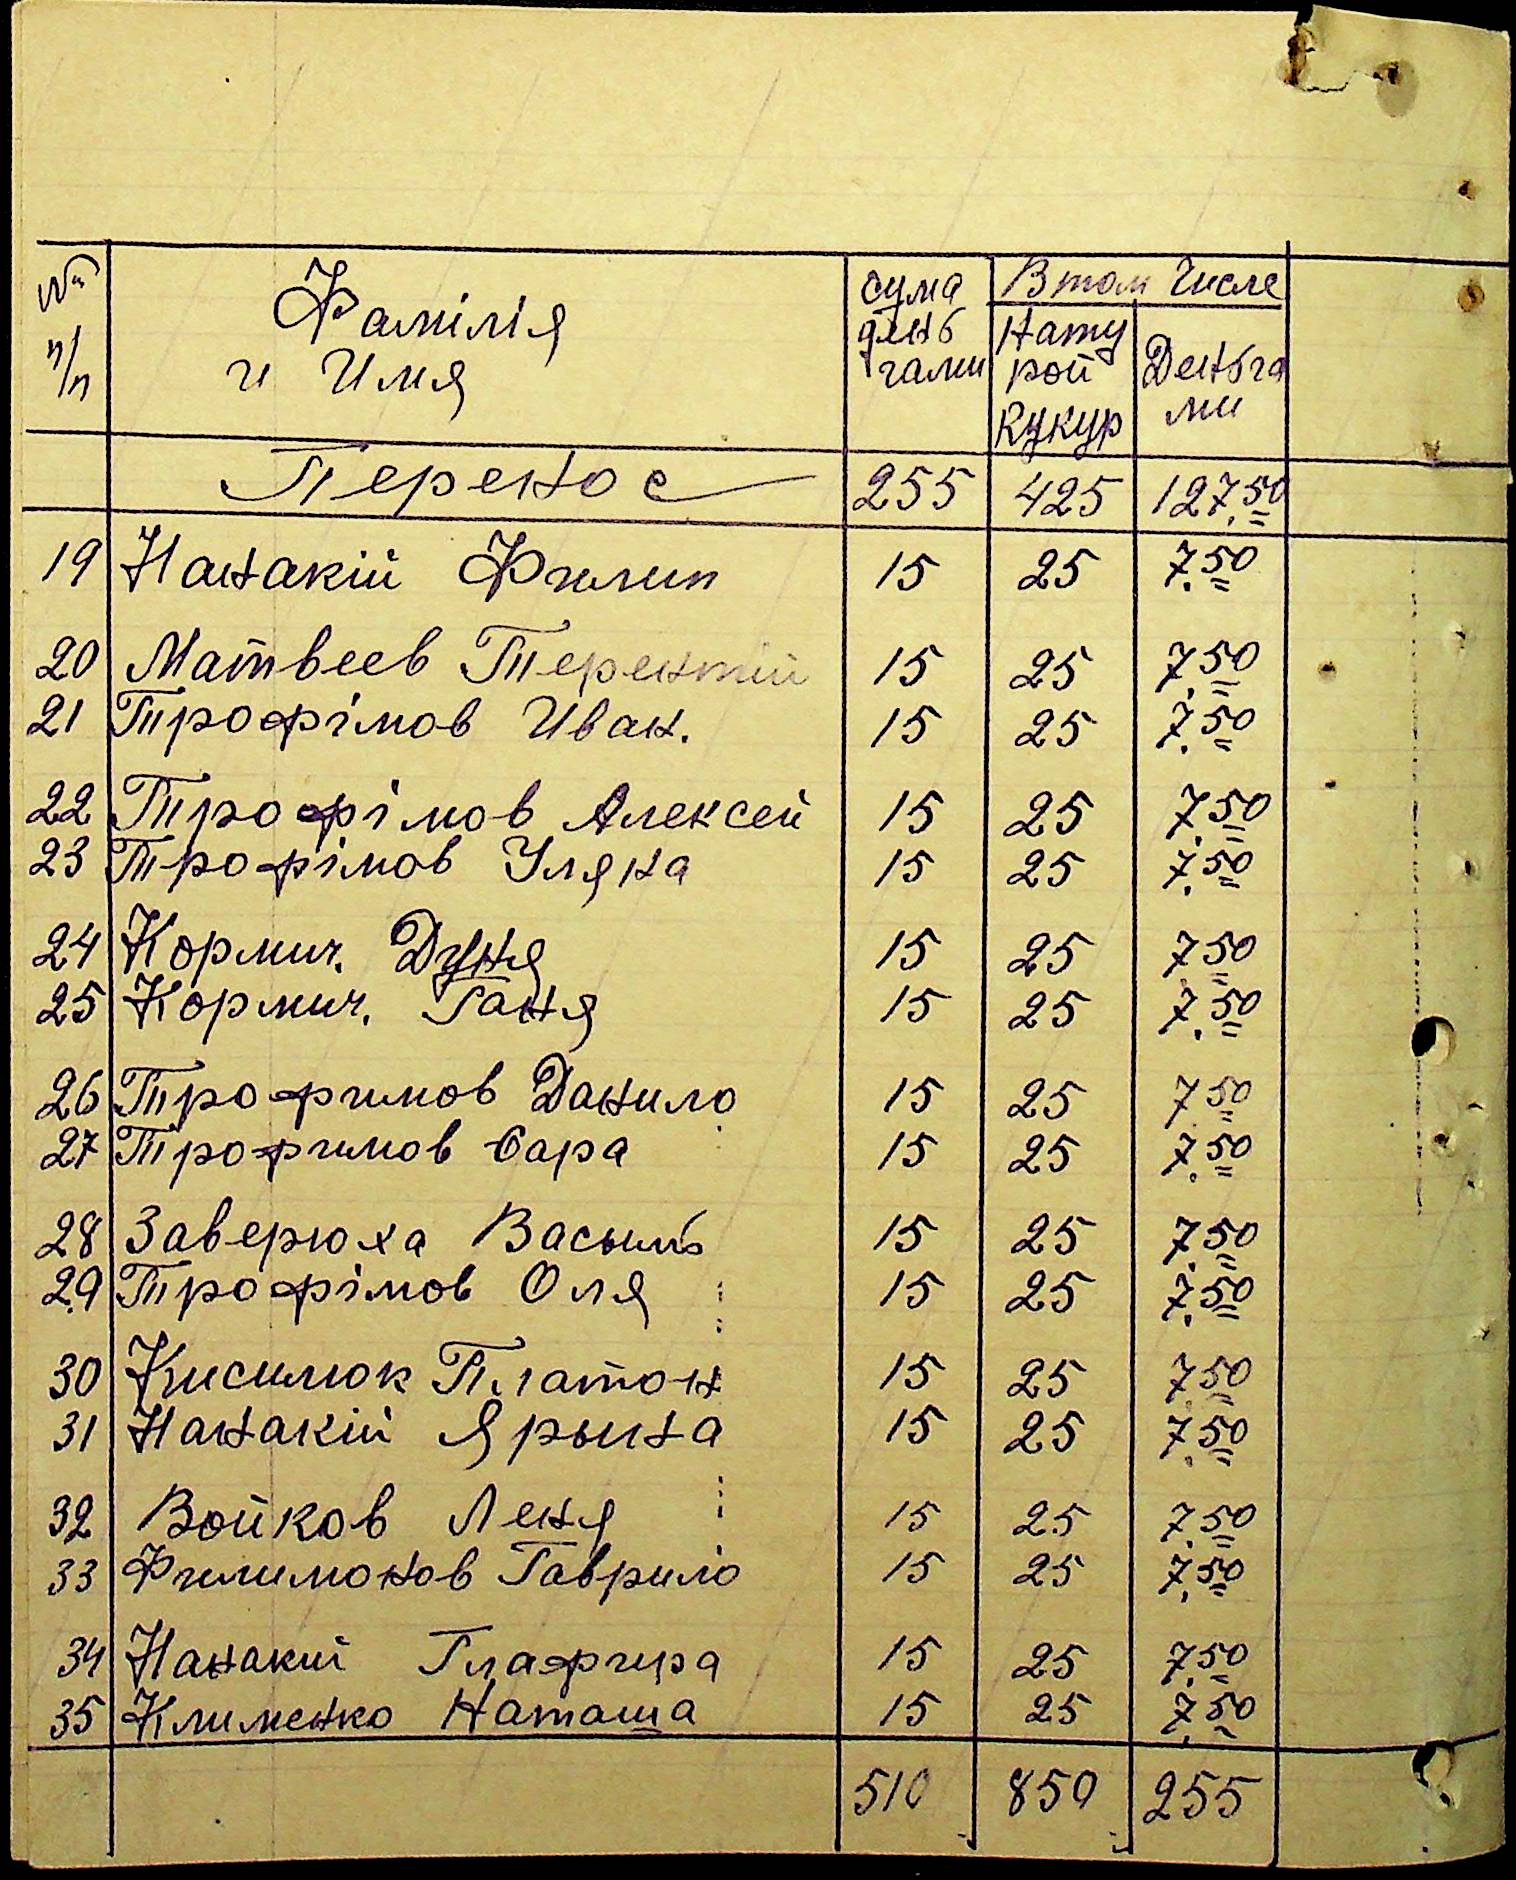 № п/п Фамілія и Имя сума деньгами В том Числе Натурой Кукур Деньгами
Перенос 255 425 127,50
19 Нанакій Филип 15 25 7.50
20 Матвеев Терентій 15 25 7,50
21 Трофімов Иван. 15 25 7.50
22 Трофімов Алексей 15 25 7,50
23 Трофімов Уляна 15 25 7.50
24 Кормич. Дуня 15 25 7 50
25 Кормич. Ганя 15 25 7.50
26 Трофимов Данило 15 25 7 50
27 Трофимов Сара 15 25 7.50
28 Заверюха Васыль 15 25 7,50
29 Трофімов Оля 15 25 7.50
30 Кисилюк Платон 15 25 7 50
31 Нанакій Ярына 15 25 7.50
32 Войков Леня 15 25 7.50
33 Филимонов Гаврило 15 25 7,50
34 Нанакий Глафира 15 25 7,50
35 Клименко Наташа 15 25 7,50
510 850 255